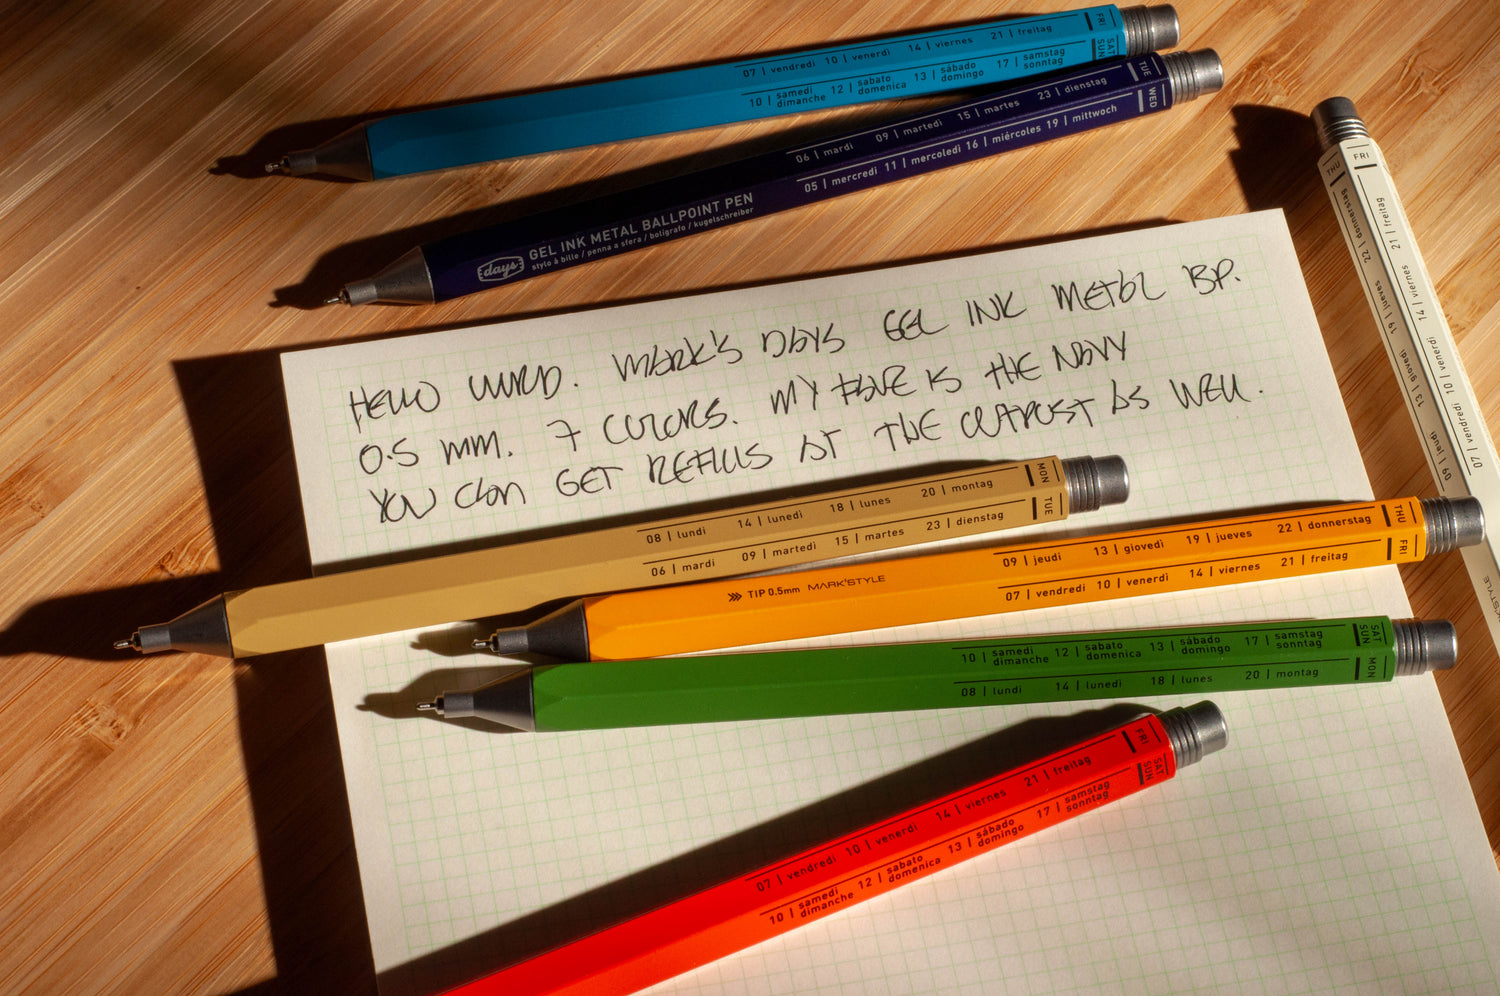 07 | vendredi 10 | venerdì 14 | viernes 21 | freitag FRI
10 | samedi dimanche 12 | sabato domenica 13 | sábado domingo 17 | samstag sonntag SAT SUN
06 | mardi 09 | martedì 15 | martes 23 | dienstag TUE
05 | mercredi 11 | mercoledì 16 | miércoles 19 | mittwoch WED
days GEL INK METAL BALLPOINT PEN
stylo à bille / penna a sfera / bolígrafo / kugelschreiber
THU FRI
22 | donnerstag 19 | jueves 13 | giovedì 09 | jeudi
21 | freitag 14 | viernes 10 | venerdì 07 | vendredi
MARK'STYLE
HELLO WORLD. MARK'S DAYS GEL INK METAL BP.
0.5 MM. 7 COLORS. MY FAVE IS THE NAVY
YOU CAN GET REFILLS AT THE OUTPOST AS WELL.
08 | lundi 14 | lunedì 18 | lunes 20 | montag MON
06 | mardi 09 | martedì 15 | martes 23 | dienstag TUE
09 | jeudi 13 | giovedì 19 | jueves 22 | donnerstag THU
07 | vendredi 10 | venerdì 14 | viernes 21 | freitag FRI
TIP 0.5mm MARK'STYLE
10 | samedi dimanche 12 | sabato domenica 13 | sábado domingo 17 | samstag sonntag SAT SUN
08 | lundi 14 | lunedì 18 | lunes 20 | montag MON
07 | vendredi 10 | venerdì 14 | viernes 21 | freitag FRI
10 | samedi dimanche 12 | sabato domenica 13 | sábado domingo 17 | samstag sonntag SAT SUN